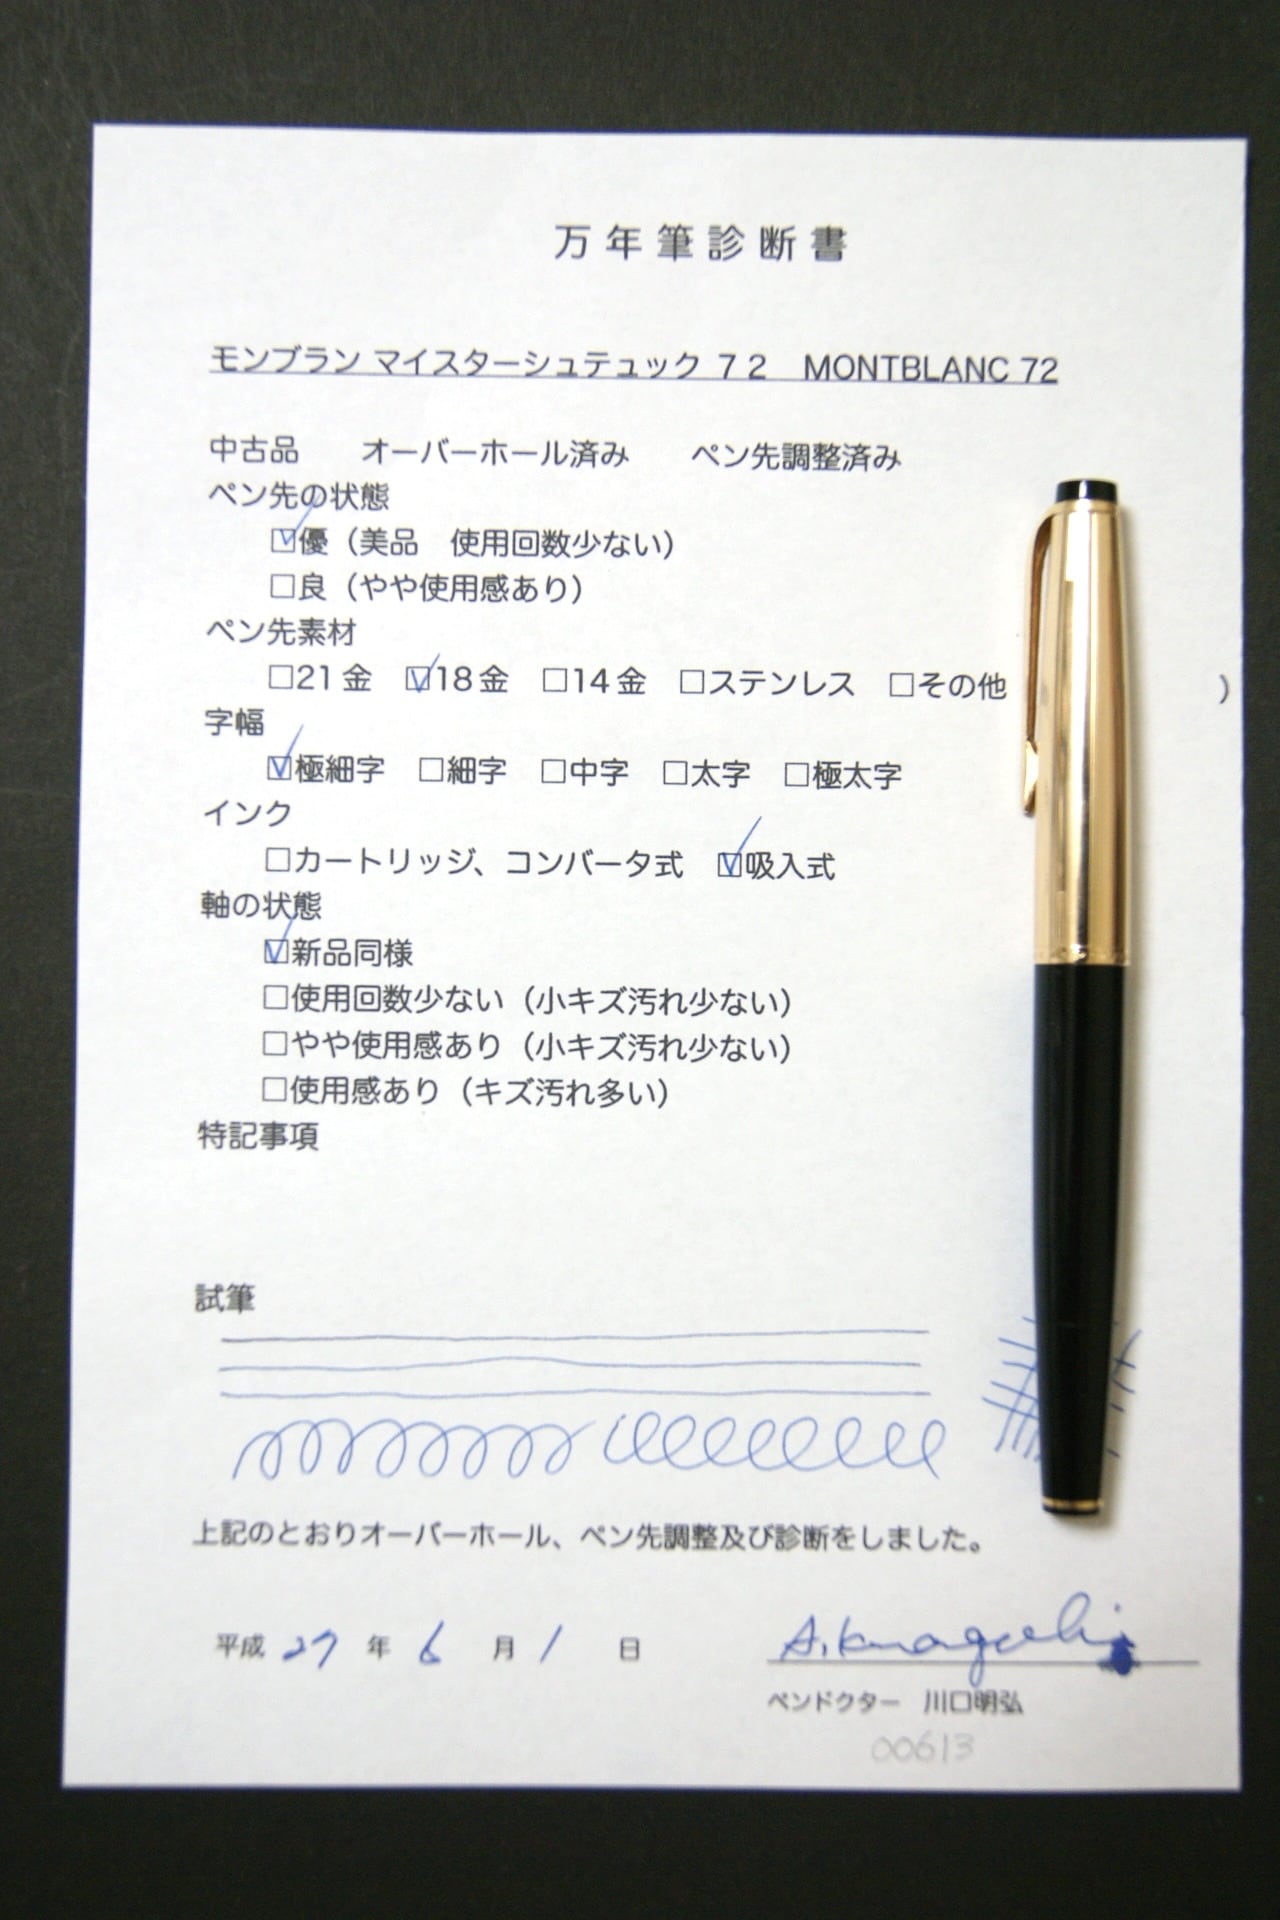 万年筆診断書
モンブラン マイスターシュテュック 72　MONTBLANC 72
中古品　　オーバーホール済み　　ペン先調整済み
ペン先の状態
☑優（美品　使用回数少ない）
□良（やや使用感あり）
ペン先素材
□21金　☑18金　□14金　□ステンレス　□その他　）
字幅
☑極細字　□細字　□中字　□太字　□極太字
インク
□カートリッジ、コンバータ式　☑吸入式
軸の状態
☑新品同様
□使用回数少ない（小キズ汚れ少ない）
□やや使用感あり（小キズ汚れ少ない）
□使用感あり（キズ汚れ多い）
特記事項
試筆
上記のとおりオーバーホール、ペン先調整及び診断をしました。
平成 27 年 6 月 1 日
ペンドクター　川口明弘
00613